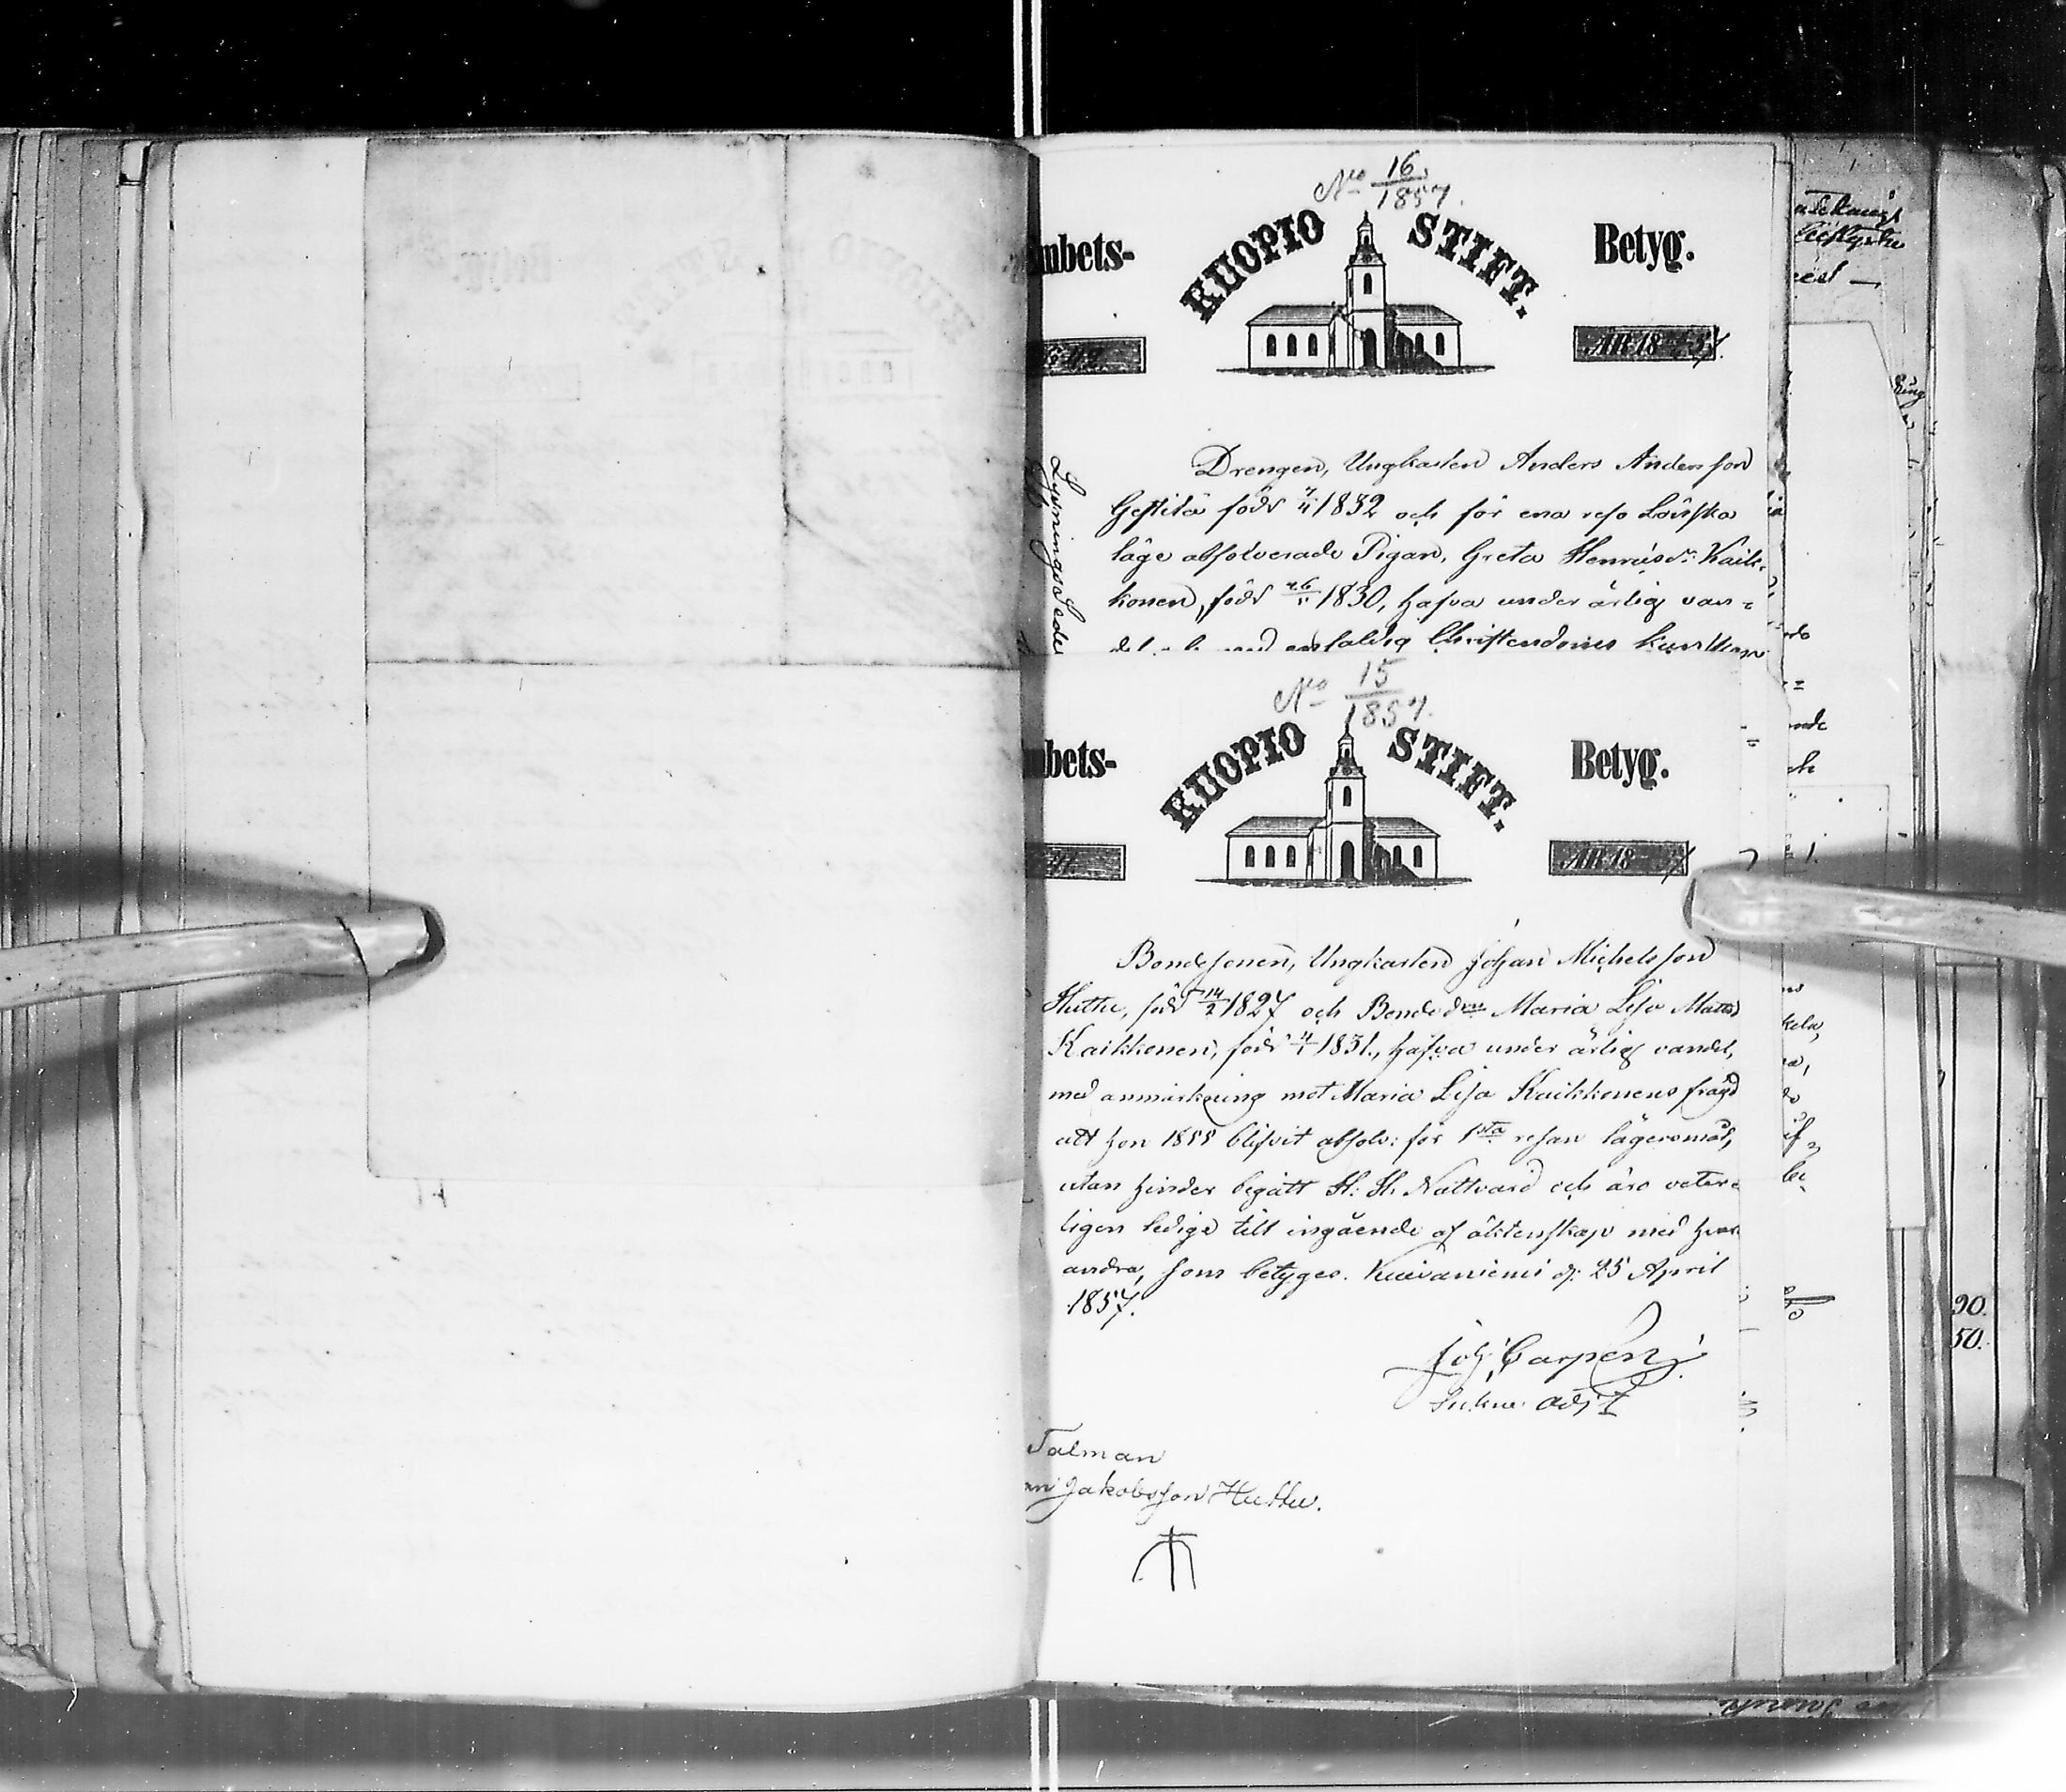 No 16
1857.
mbets-
KUOPIO STIFT.
Betyg.
ÅR 1857.
Lysningssedel
Drengen, Ungkarlen Anders Andersson
född 7/11 1832 och för ena reso Lönska
läge absolverade Pigan, Greta Henricsdr Kaik-
konen, född 26/11 1830, hafva under ärlig van-
del och med enfaldig Christendoms kunskap
No 15
1857.
mbets-
KUOPIO STIFT.
Betyg.
41.
ÅR 1857
Bondesonen, Ungkarlen Johan Michelsson
Huttu, född 14/2 1827 och Bondedrn Maria Lisa Mattsd
Kaikkonen, född 4/1 1831., hafva under ärlig vandel,
med anmärkning mot Maria Lisa Kaikkonens frägd
att hon 1855 blifvit absolv: för 1sta resan lägersmål,
utan hinder begått H. H. Nattvard och äro veter-
ligen ledige till ingående af äktenskap med hvar
andra, som betyges. Kuivaniemi d. 25 April
1857.
Joh. Carpén
Talman
Jakobsson Huttu.
90.
50.